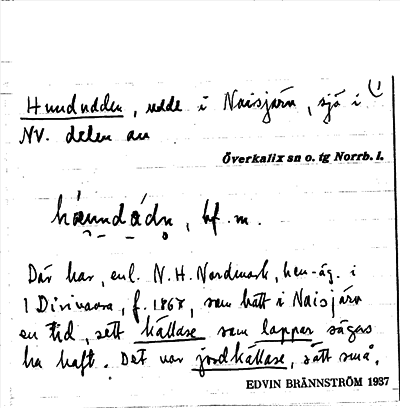 1
Hundudden, udde i Naisjärv, sjö i
NV. delen av
Överkalix sn o. tg Norrb. l.
bf. m.
Där har, enl. N. H. Nordmark, hem.-äg. i
1 Dirivaara, f. 1868, som hatt i Naisjärv
en tid, sett källare som lappar sägas
ha haft. Det var jordkällare, rätt små.
EDVIN BRÄNNSTRÖM 1937